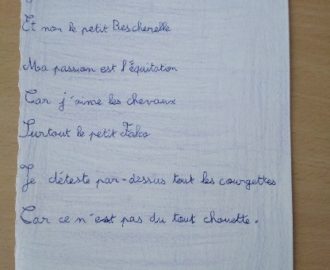 Et non le petit Bescherelle
Ma passion est l'équitation
Car j'aime les chevaux
Surtout le petit Falco
Je déteste par-dessus tout les courgettes
Car ce n'est pas du tout chouette.